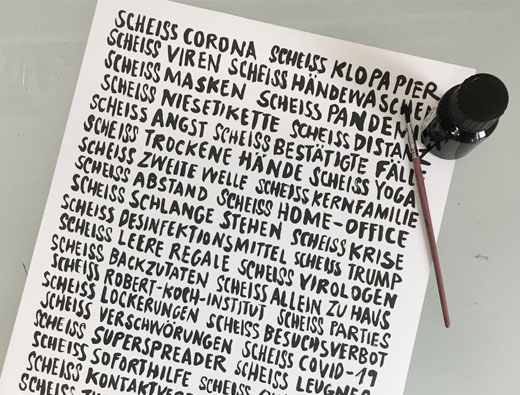 SCHEISS CORONA SCHEISS KLOPAPIER
SCHEISS VIREN SCHEISS HÄNDEWASCHEN
SCHEISS MASKEN SCHEISS PANDEMIE
SCHEISS NIESETIKETTE SCHEISS DISTANZ
SCHEISS ANGST SCHEISS BESTÄTIGTE FÄLLE
SCHEISS TROCKENE HÄNDE SCHEISS YOGA
SCHEISS ZWEITE WELLE SCHEISS KERNFAMILIE
SCHEISS ABSTAND SCHEISS HOME-OFFICE
SCHEISS SCHLANGE STEHEN SCHEISS KRISE
SCHEISS DESINFEKTIONSMITTEL SCHEISS TRUMP
SCHEISS LEERE REGALE SCHEISS VIROLOGEN
SCHEISS BACKZUTATEN SCHEISS ALLEIN ZU HAUS
SCHEISS ROBERT-KOCH-INSTITUT SCHEISS PARTIES
SCHEISS LOCKERUNGEN SCHEISS BESUCHSVERBOT
SCHEISS VERSCHWÖRUNGEN SCHEISS COVID-19
SCHEISS SUPERSPREADER SCHEISS LEUGNER
SCHEISS SOFORTHILFE SCHEISS
SCHEISS
SCHEISS